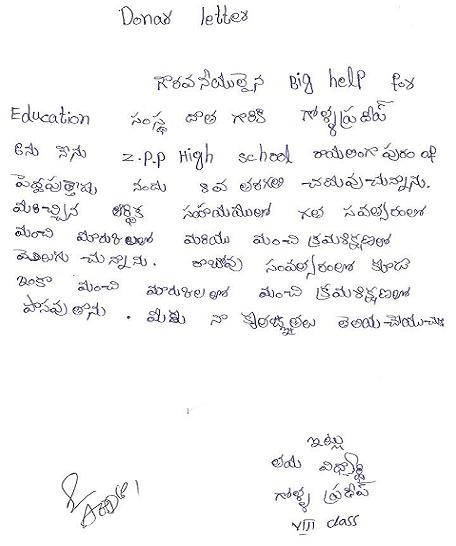 Donar letter
గౌరవనీయులైన Big help for
Education సంస్థ దాత గారికి గొళ్ళ ప్రదీప్
అను నేను Z.P.P High school రాయలింగాపురం
నందు 8వ తరగతి చదువుచున్నాను.
ఆర్థిక సహాయంలో గత సవత్సరంలో
మంచి మార్కులలో మరియు మంచి క్రమశిక్షణలో
మెలుగు చున్నాను. రాబోవు సంవత్సరంలో కూడా
ఇంకా మంచి మారుకులలో మంచి క్రమశిక్షణలో
పాసవుతాను. మీకు నా కృతజ్ఞతలు తెలియ చేయుచు
ఇట్లు
విద్యార్థి
గొళ్ళ ప్రదీప్
VIII class